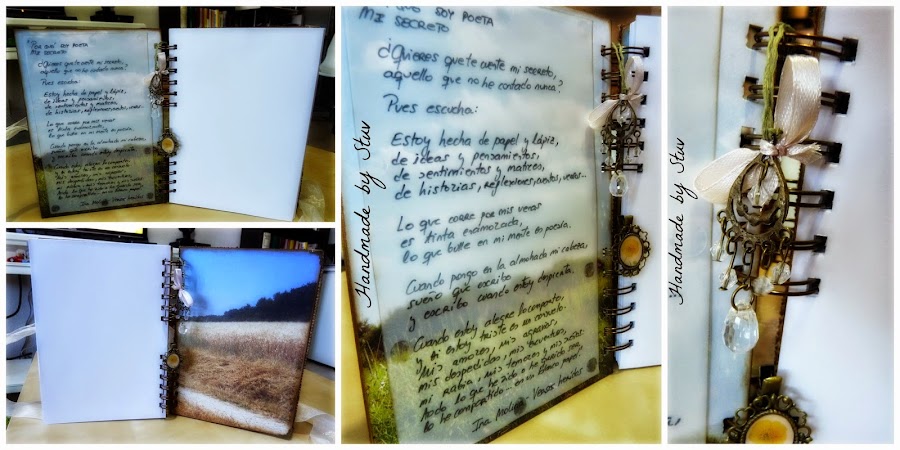 POR QUÉ SOY POETA
MI SECRETO
¿Quieres que te cuente mi secreto,
aquello que no he contado nunca?
Pues escucha:
Estoy hecha de papel y lápiz,
de ideas y pensamientos,
de sentimientos y matices,
de historias, reflexiones, cantos, versos...
Lo que corre por mis venas
es tinta enamorada,
lo que bulle en mi mente es poesía.
Cuando pongo en la almohada mi cabeza,
sueño que escribo
y escribo cuando estoy despierta.
Cuando estoy alegre lo comparto,
y si estoy triste es mi consuelo.
Mis amores, mis
mis despedidas, mis encuentros,
mi rabia, mis temores y mis
todo lo que he sido o he querido ser,
lo he compartido... en un blanco papel.
Ina Molina Versos benitos
Handmade by Stuv
Handmade by Stuv